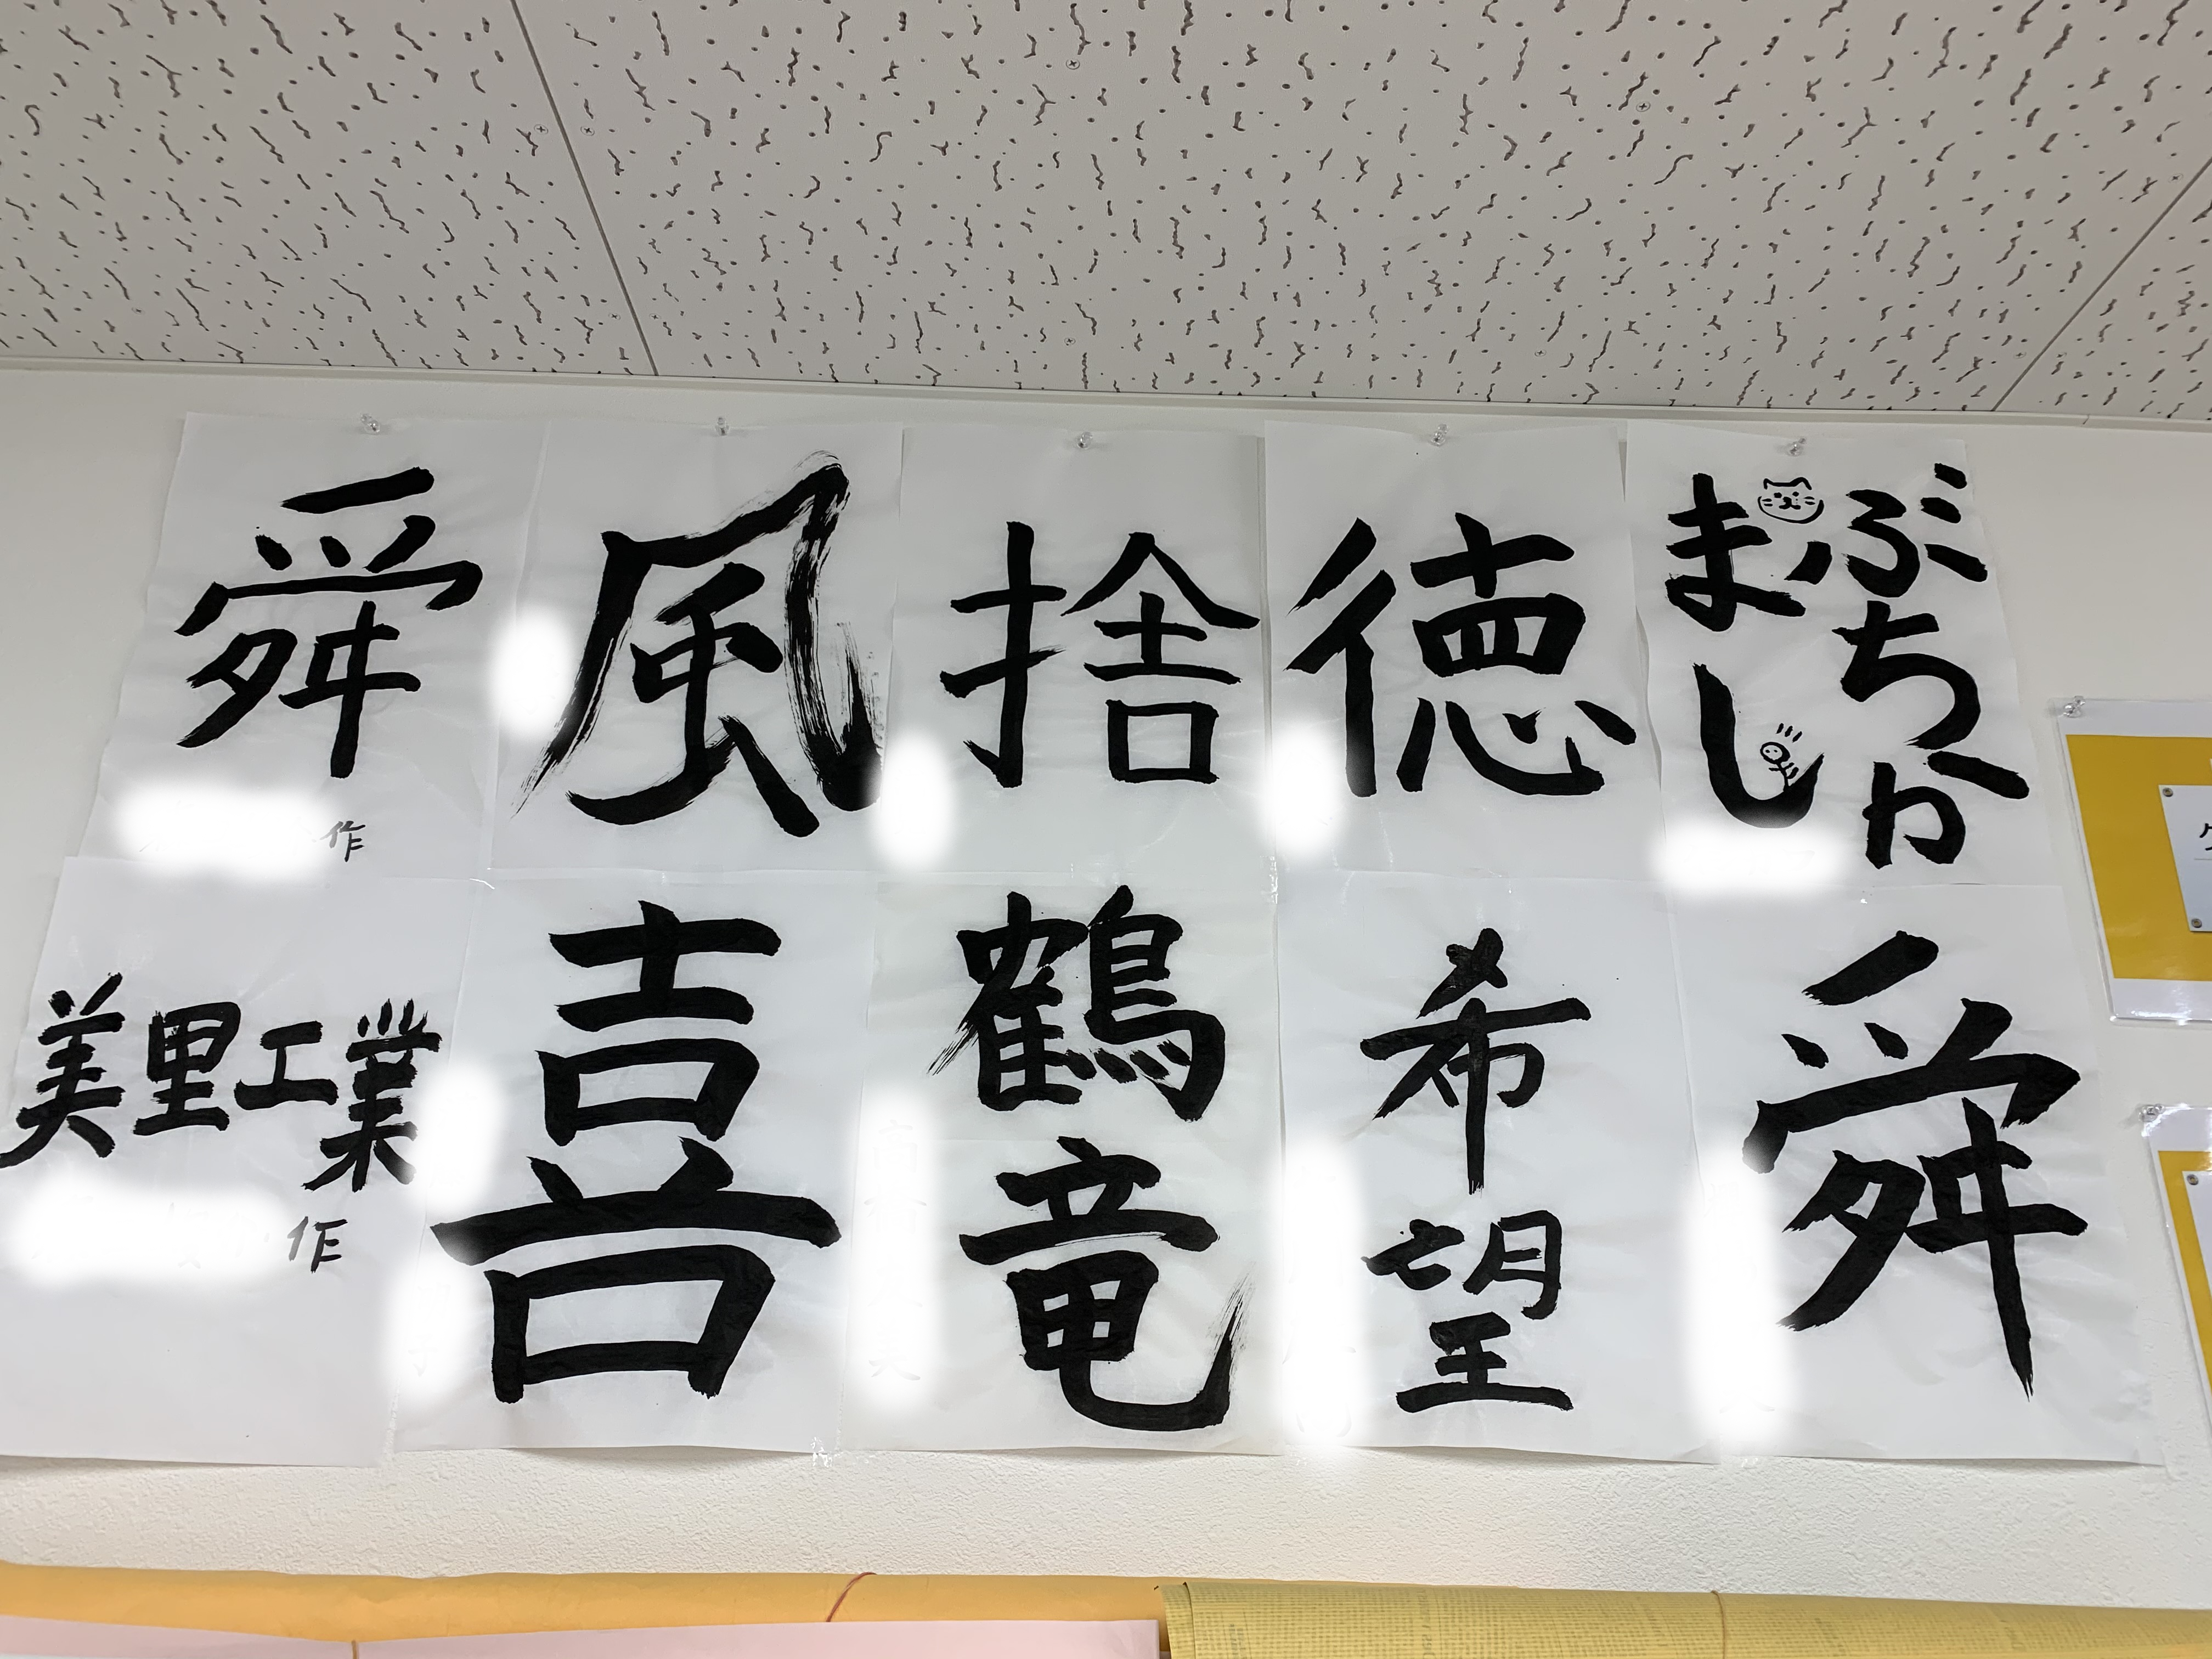 舜
作
風
捨
徳
ぶちか
まし
美里工業
作
喜
鶴
竜
希
望
舜